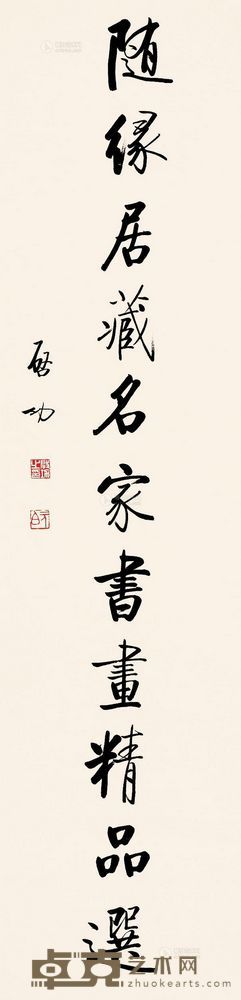 随缘居藏名家書畫精品選
启功
卓克艺术网
zhuokearts.com